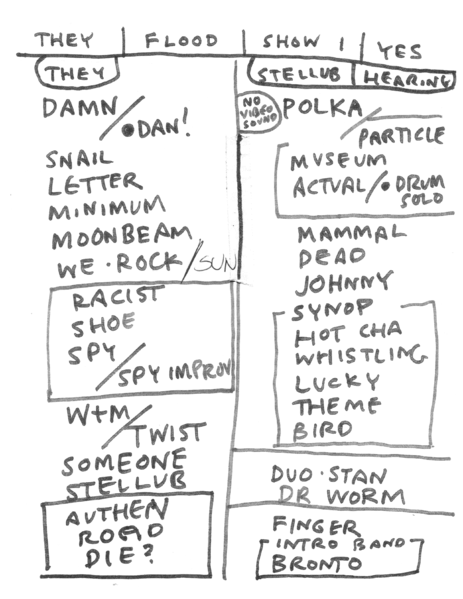 THEY FLOOD SHOW 1 YES
THEY
DAMN/
•DAN!
SNAIL
LETTER
MINIMUM
MOONBEAM
WE • ROCK/SUN
RACIST
SHOE
SPY/
SPY IMPROV
W+M/
TWIST
SOMEONE
STELLUB
AUTHEN
ROAD
DIE?
STELLUB HEARING
NO VIDEO SOUND
POLKA/
PARTICLE
MVSEUM
ACTVAL/•DRUM
SOLO
MAMMAL
DEAD
JOHNNY
SYNOP
HOT CHA
WHISTLING
LUCKY
THEME
BIRD
DUO • STAN
DR WORM
FINGER
INTRO BAND
BRONTO